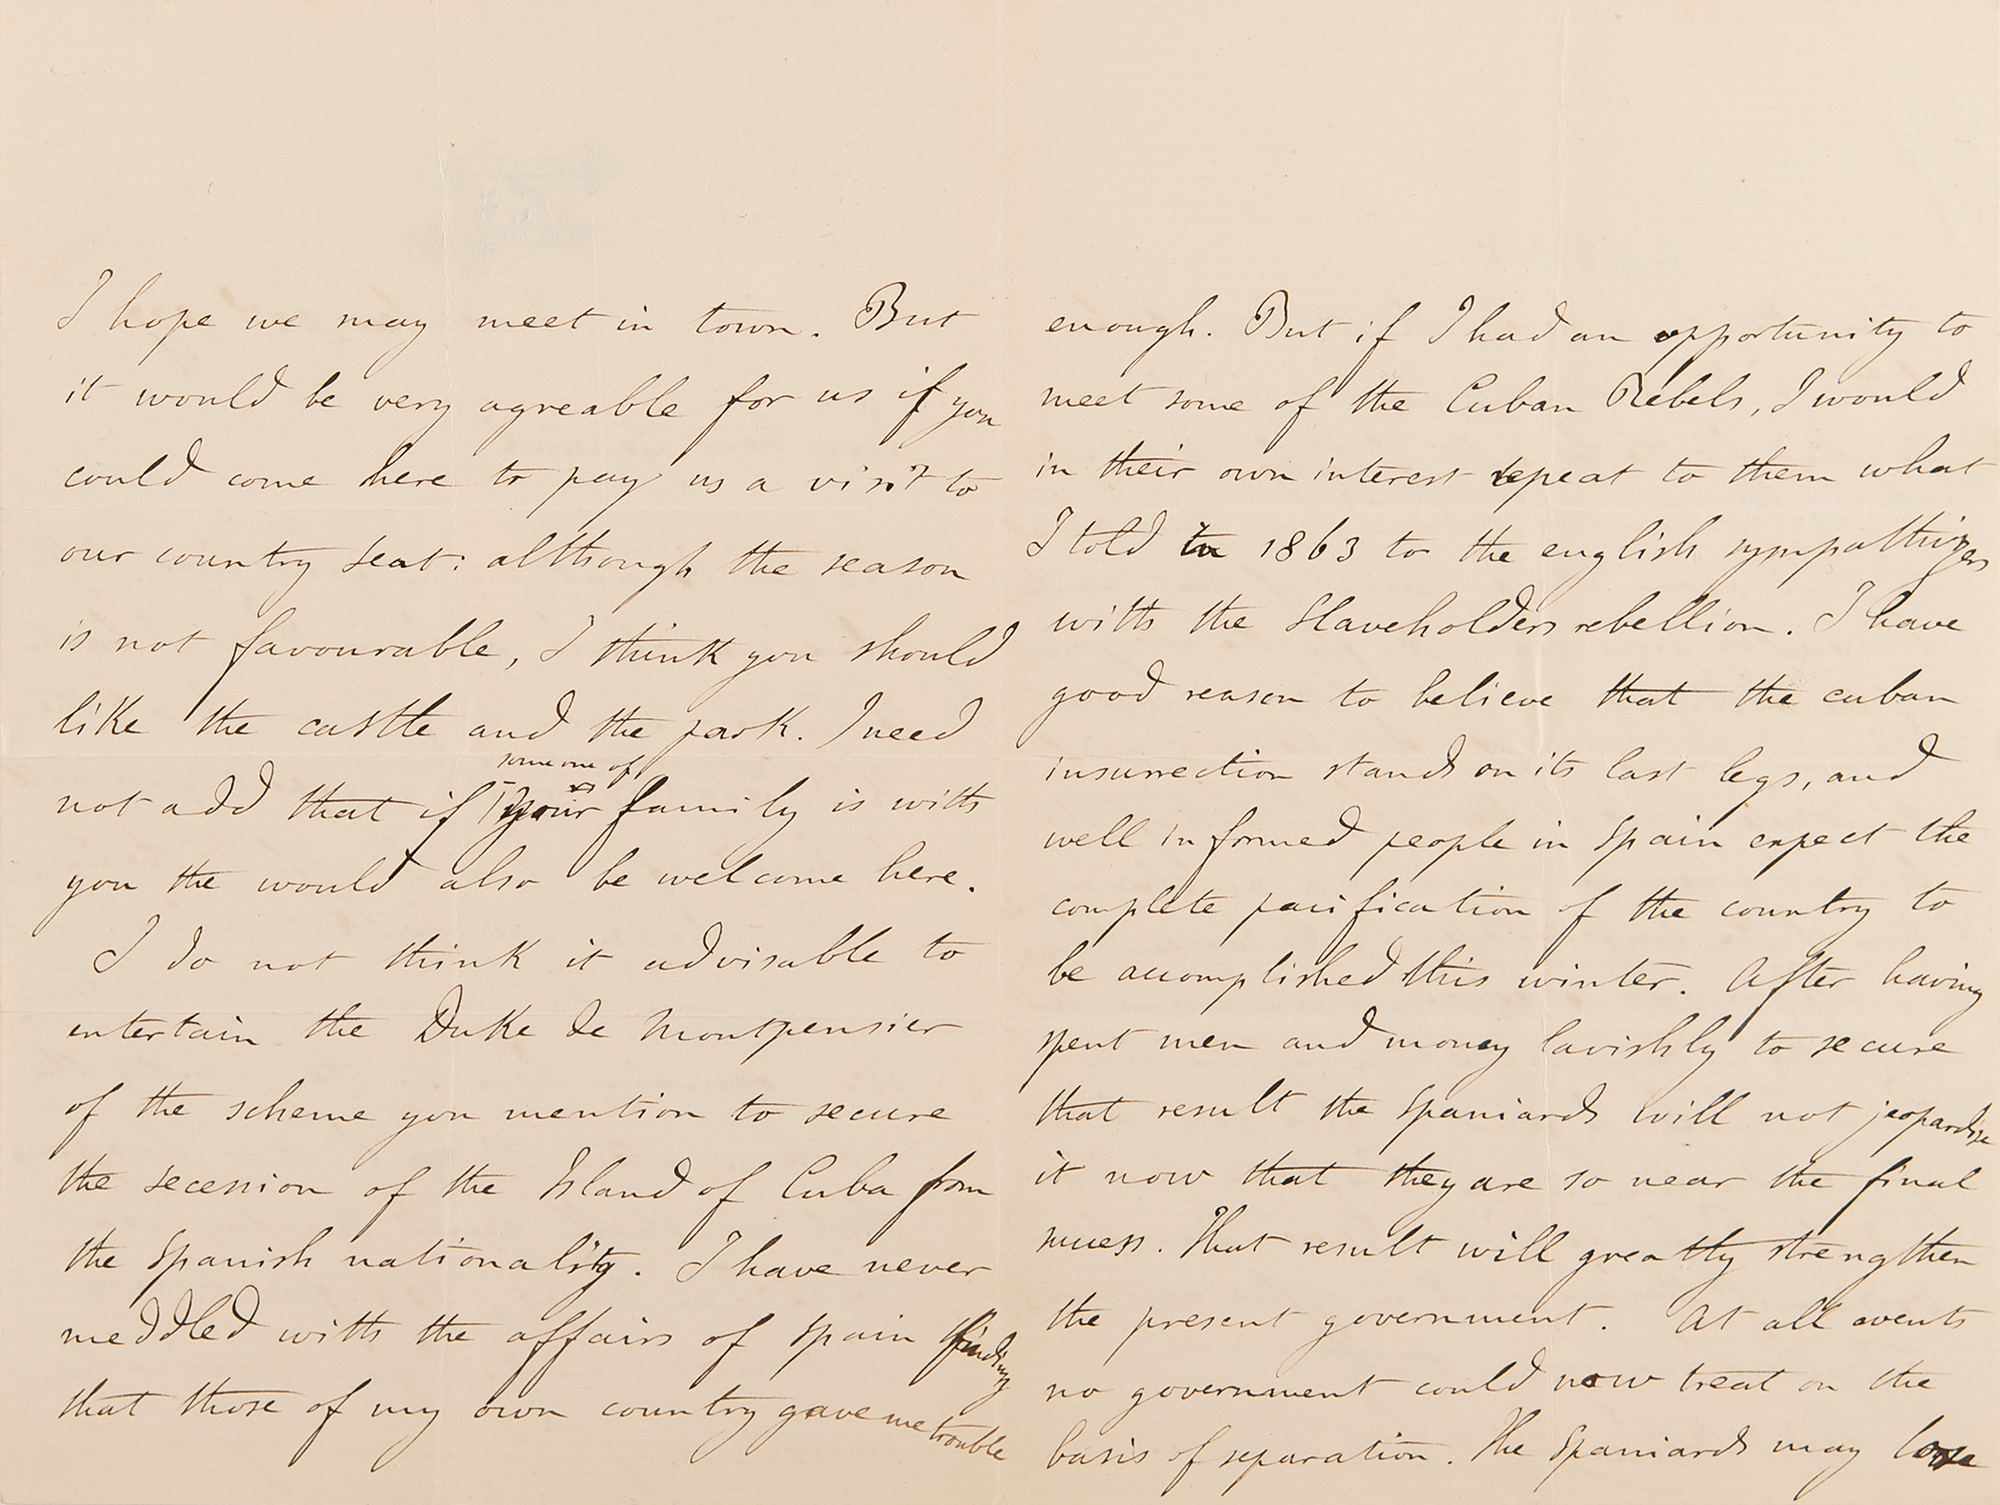 I hope we may meet in town. But
it would be very agreable for us if you
could come here to pay us a visit to
our country seat: although the season
is not favourable, I think you should
like the castle and the park. I need
some one of
not add that if your family is with
you the would also be welcome here.
I do not think it advisable to
entertain the Duke de Montpensier
of the scheme you mention to secure
the secession of the Island of Cuba from
the Spanish nationality. I have never
meddled with the affairs of Spain finding
that those of my own country gave me trouble
enough. But if I had an opportunity to
meet some of the Cuban Rebels, I would
in their own interest repeat to them what
I told in 1863 to the english sympathizers
with the Slaveholders rebellion. I have
good reason to believe that the cuban
insurrection stands on its last legs, and
well informed people in Spain expect the
complete pacification of the country to
be accomplished this winter. After having
spent men and money lavishly to secure
that result the Spaniards will not jeopardize
it now that they are so near the final
success. That result will greatly strengthen
the present government. At all events
no government could now treat on the
basis of separation. The Spaniards may loose